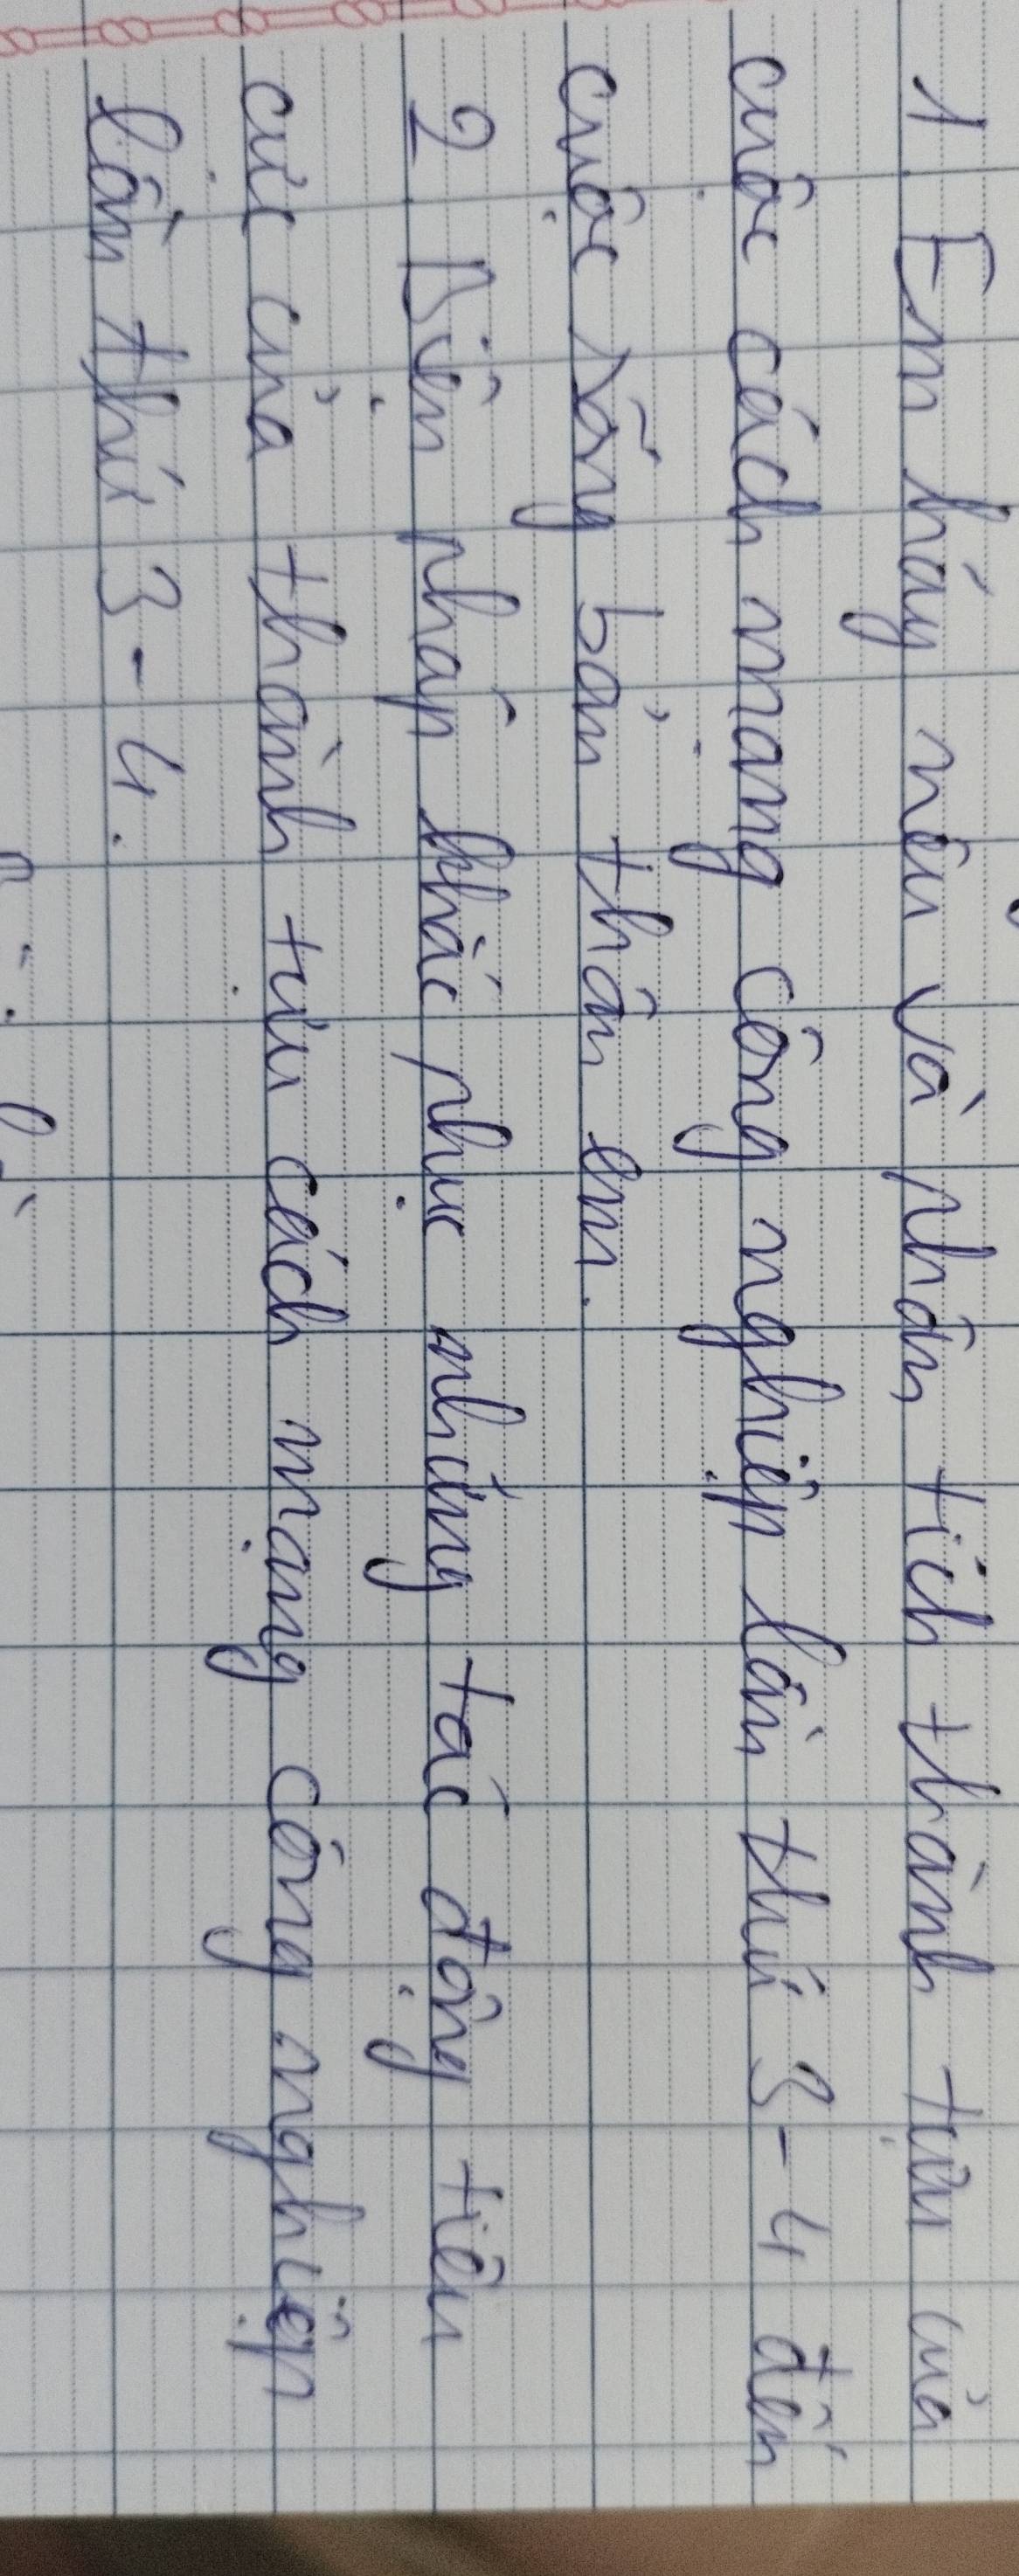 1. Em hãy nêu và phân tích thành tựu của
cuộc cách mạng công nghiệp lần thứ 3-4 đến
cuộc sống bản thân em.
2. Biện pháp khắc phục những tác động tiêu
cực của thành tựu cách mạng công nghiệp
lần thứ 3-4.